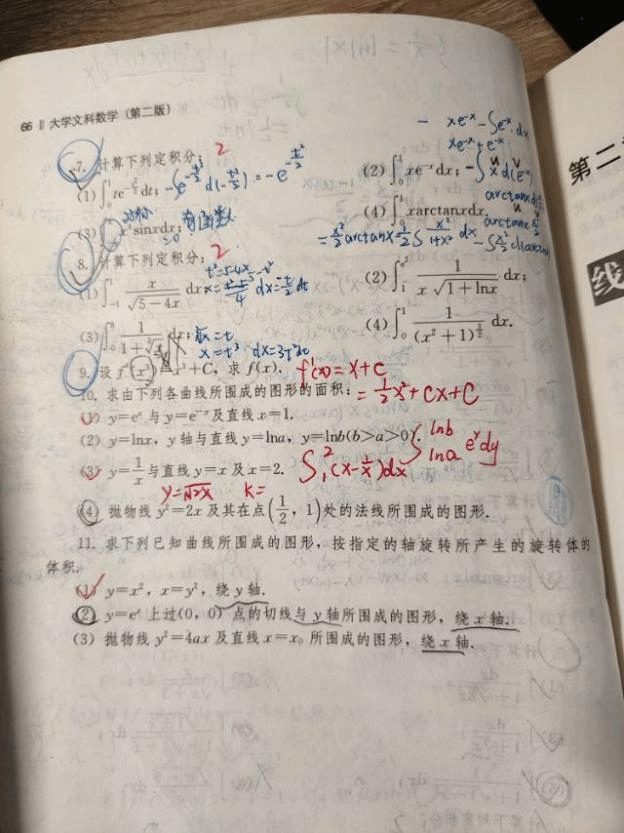 66 ‖ 大学文科数学（第二版）
7. 计算下列定积分： 2
- xe^{-x} - ∫e^{-x}dx
xe^{-x} + e^{-x}
(1) ∫₀¹ te^{-t²/2}dt; -∫e^{-t²/2}d(-t²/2) = -e^{-t²/2}
(2) ∫₀¹ xe^{-x}dx; -∫xd(e^{-x})
(3) sinxdx;
(4) ∫₀¹ xarctanxdx.
= x²/2 arctanx - 1/2∫ x²/(1+x²) dx
8. 计算下列定积分： 2
(1) ∫₋₁¹ x/√(5-4x) dx
dx = -t/2 dt
(2) ∫₁^{e²} 1/(x√(1+lnx)) dx;
(3) ∫₀⁸ 1/(1+∛x) dx; ∛x=t
x=t³ dx=3t²dt
(4) ∫₀¹ 1/(x²+1)^{3/2} dx.
9. 设 f'(x³)=x³+C，求 f(x). f'(x)=x+C
10. 求由下列各曲线所围成的图形的面积： = 1/2x²+Cx+C
(1) y=eˣ 与 y=e⁻ˣ 及直线 x=1.
(2) y=lnx，y 轴与直线 y=lna，y=lnb(b>a>0). ∫_{lna}^{lnb} e^y dy
(3) y=1/x 与直线 y=x 及 x=2. ∫₁² (x-1/x)dx
y=√2x k=
(4) 抛物线 y²=2x 及其在点(1/2，1)处的法线所围成的图形.
11. 求下列已知曲线所围成的图形，按指定的轴旋转所产生的旋转体的
体积.
(1) y=x²，x=y²，绕 y 轴.
(2) y=eˣ 上过(0，0)点的切线与 y 轴所围成的图形，绕 x 轴.
(3) 抛物线 y²=4ax 及直线 x=x₀ 所围成的图形，绕 x 轴.
第二
线